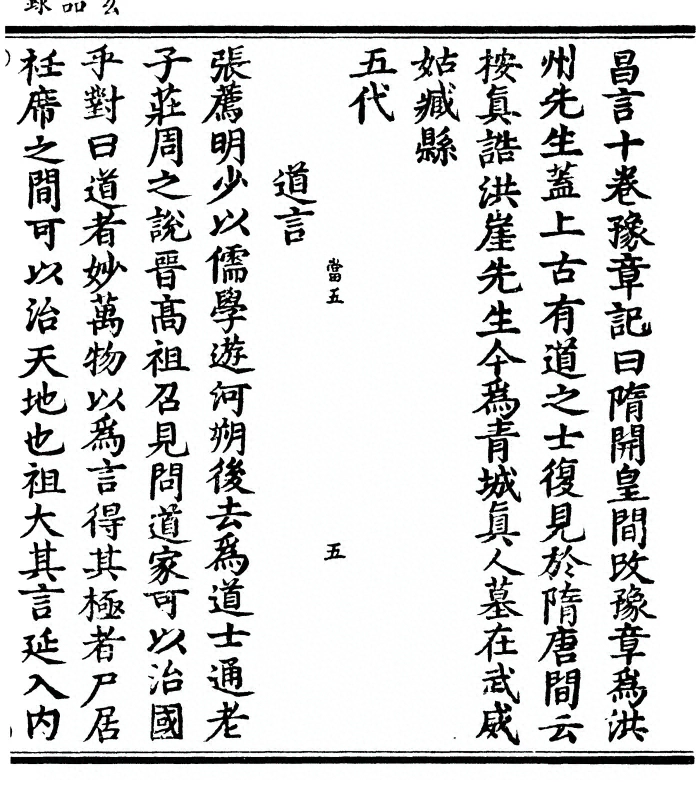 昌言十卷豫章記曰隋開皇間改豫章爲洪
州先生蓋上古有道之士復見於隋唐間云
按眞誥洪崖先生今爲青城眞人墓在武威
姑臧縣
五代
當五 五
道言
張薦明少以儒學遊河朔後去爲道士通老
子莊周之說晉高祖召見問道家可以治國
乎對曰道者妙萬物以爲言得其極者尸居
衽席之間可以治天地也祖大其言延入内